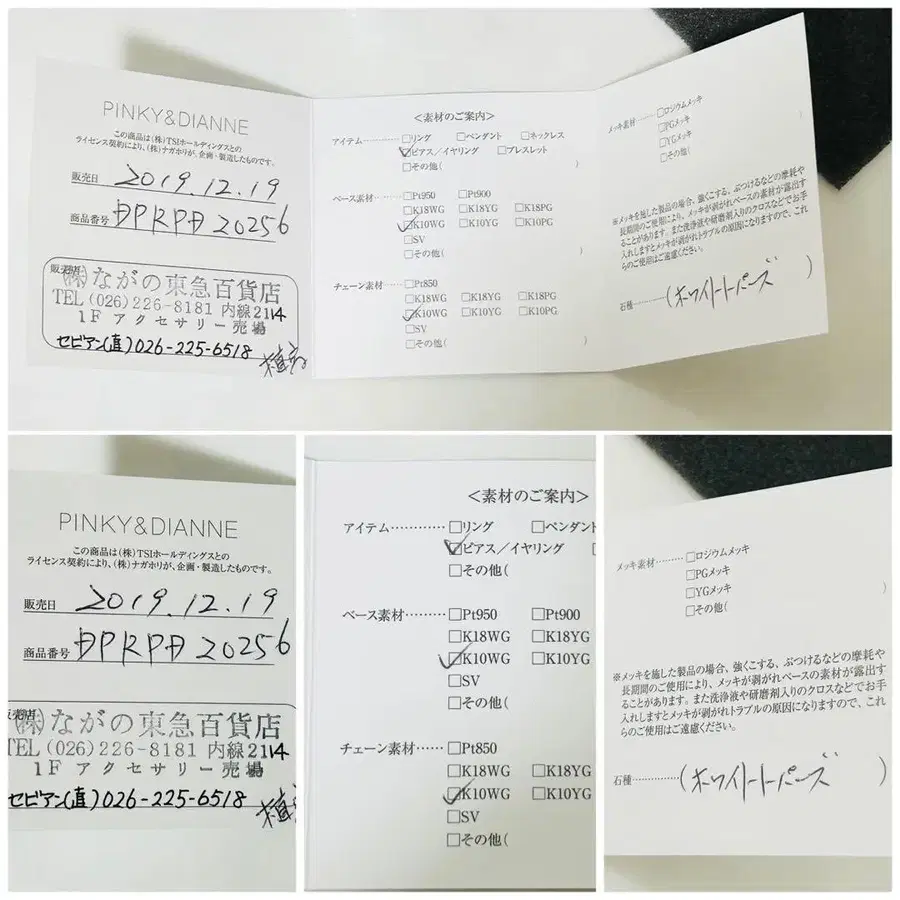 PINKY&DIANNE
この商品は(株)TSIホールディングスとの
ライセンス契約により、(株)ナガホリが、企画・製造したものです。
販売日 2019.12.19
商品番号 DPRPD 20256
販売店
(株)ながの東急百貨店
TEL (026)226-8181 内線2114
1F アクセサリー売場
セビアン(直)026-225-6518
<素材のご案内>
アイテム…………□リング □ペンダント □ネックレス
☑ピアス/イヤリング □ブレスレット
□その他( )
ベース素材……□Pt950 □Pt900
□K18WG □K18YG □K18PG
☑K10WG □K10YG □K10PG
□SV
□その他( )
チェーン素材……□Pt850
□K18WG □K18YG □K18PG
☑K10WG □K10YG □K10PG
□SV
□その他( )
メッキ素材………□ロジウムメッキ
□PGメッキ
□YGメッキ
□その他( )
※メッキを施した製品の場合、強くこする、ぶつけるなどの摩耗や
長期間のご使用により、メッキが剥がれベースの素材が露出す
ることがあります。また洗浄液や研磨剤入りのクロスなどでお手
入れしますとメッキが剥がれトラブルの原因になりますので、これ
らのご使用はご遠慮ください。
石種…………(ホワイトトパーズ )
PINKY&DIANNE
この商品は(株)TSIホールディングスとの
ライセンス契約により、(株)ナガホリが、企画・製造したものです。
販売日 2019.12.19
商品番号 DPRPD 20256
販売店
(株)ながの東急百貨店
TEL (026)226-8181 内線2114
1F アクセサリー売場
セビアン(直)026-225-6518
<素材のご案内>
アイテム…………□リング □ペンダント
☑ピアス/イヤリング
□その他(
ベース素材……□Pt950 □Pt900
□K18WG □K18YG
☑K10WG □K10YG
□SV
□その他(
チェーン素材……□Pt850
□K18WG □K18YG
☑K10WG □K10YG
□SV
□その他(
メッキ素材………□ロジウムメッキ
□PGメッキ
□YGメッキ
□その他( )
※メッキを施した製品の場合、強くこする、ぶつけるなどの摩耗や
長期間のご使用により、メッキが剥がれベースの素材が露出す
ることがあります。また洗浄液や研磨剤入りのクロスなどでお手
入れしますとメッキが剥がれトラブルの原因になりますので、これ
らのご使用はご遠慮ください。
石種…………(ホワイトトパーズ )